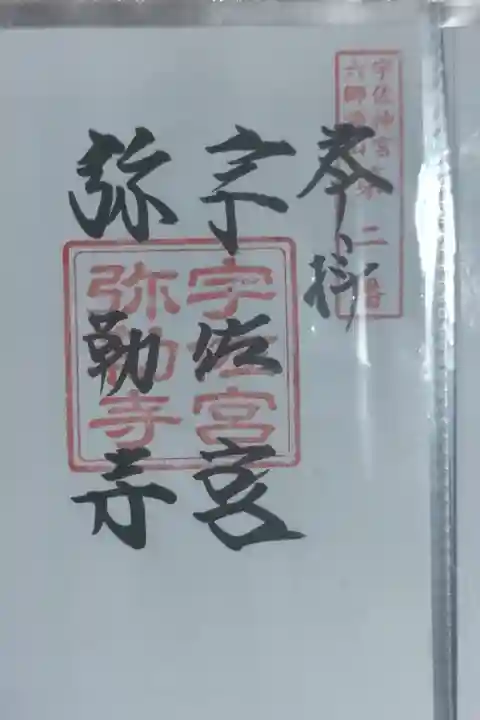 宇佐神宮六郷満山第二番
奉拝
宇佐宮
弥勒寺
宇佐宮
弥勒寺